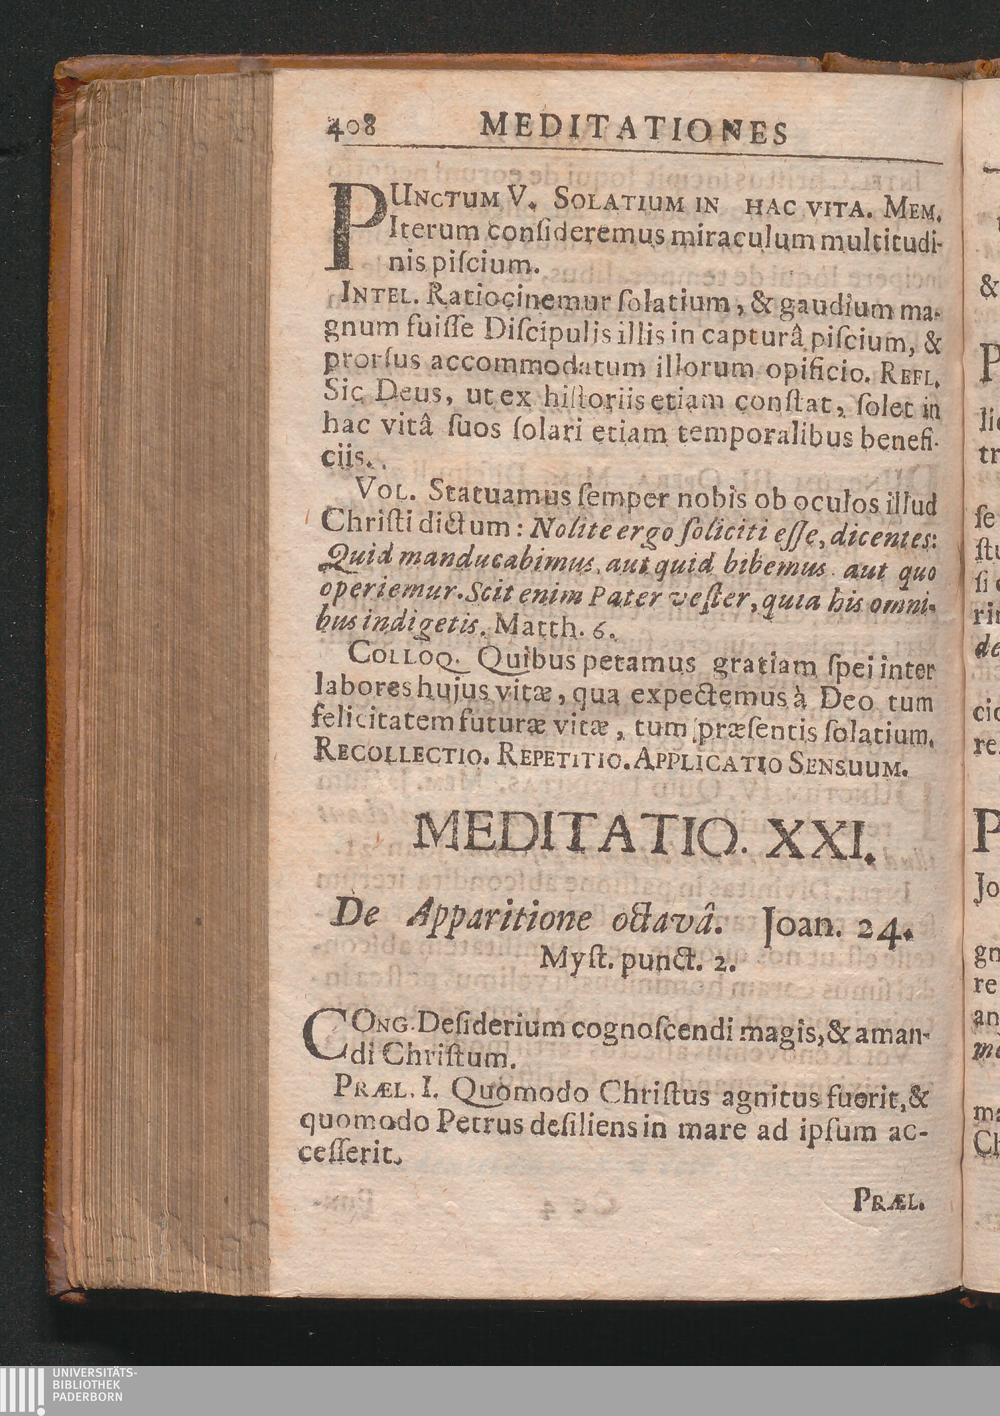 408 MEDITATIONES
PUNCTUM V. SOLATIUM IN HAC VITA. MEM.
Iterum conſideremus miraculum multitudi-
nis piſcium.
INTEL. Ratiocinemur ſolatium, & gaudium ma-
gnum fuiſſe Diſcipulis illis in capturâ piſcium, &
prorſus accommodatum illorum opificio. REFL.
Sic Deus, ut ex hiſtoriis etiam conſtat, ſolet in
hac vitâ ſuos ſolari etiam temporalibus benefi-
ciis.
VOL. Statuamus ſemper nobis ob oculos illud
Chriſti dictum: Nolite ergo ſoliciti eſſe, dicentes:
Quid manducabimus, aut quid bibemus. aut quo
operiemur. Scit enim Pater veſter, quia his omni-
bus indigetis. Matth. 6.
COLLOQ. Quibus petamus gratiam ſpei inter
labores hujus vitæ, qua expectemus à Deo tum
felicitatem futuræ vitæ, tum præſentis ſolatium.
RECOLLECTIO. REPETITIO. APPLICATIO SENSUUM.
MEDITATIO. XXI.
De Apparitione octavâ. Joan. 24.
Myſt. punct. 2.
CONG. Deſiderium cognoſcendi magis, & aman-
di Chriſtum.
PRÆL. I. Quomodo Chriſtus agnitus fuerit, &
quomodo Petrus deſiliens in mare ad ipſum ac-
ceſſerit.
PRÆL.
UNIVERSITÄTS-
BIBLIOTHEK
PADERBORN